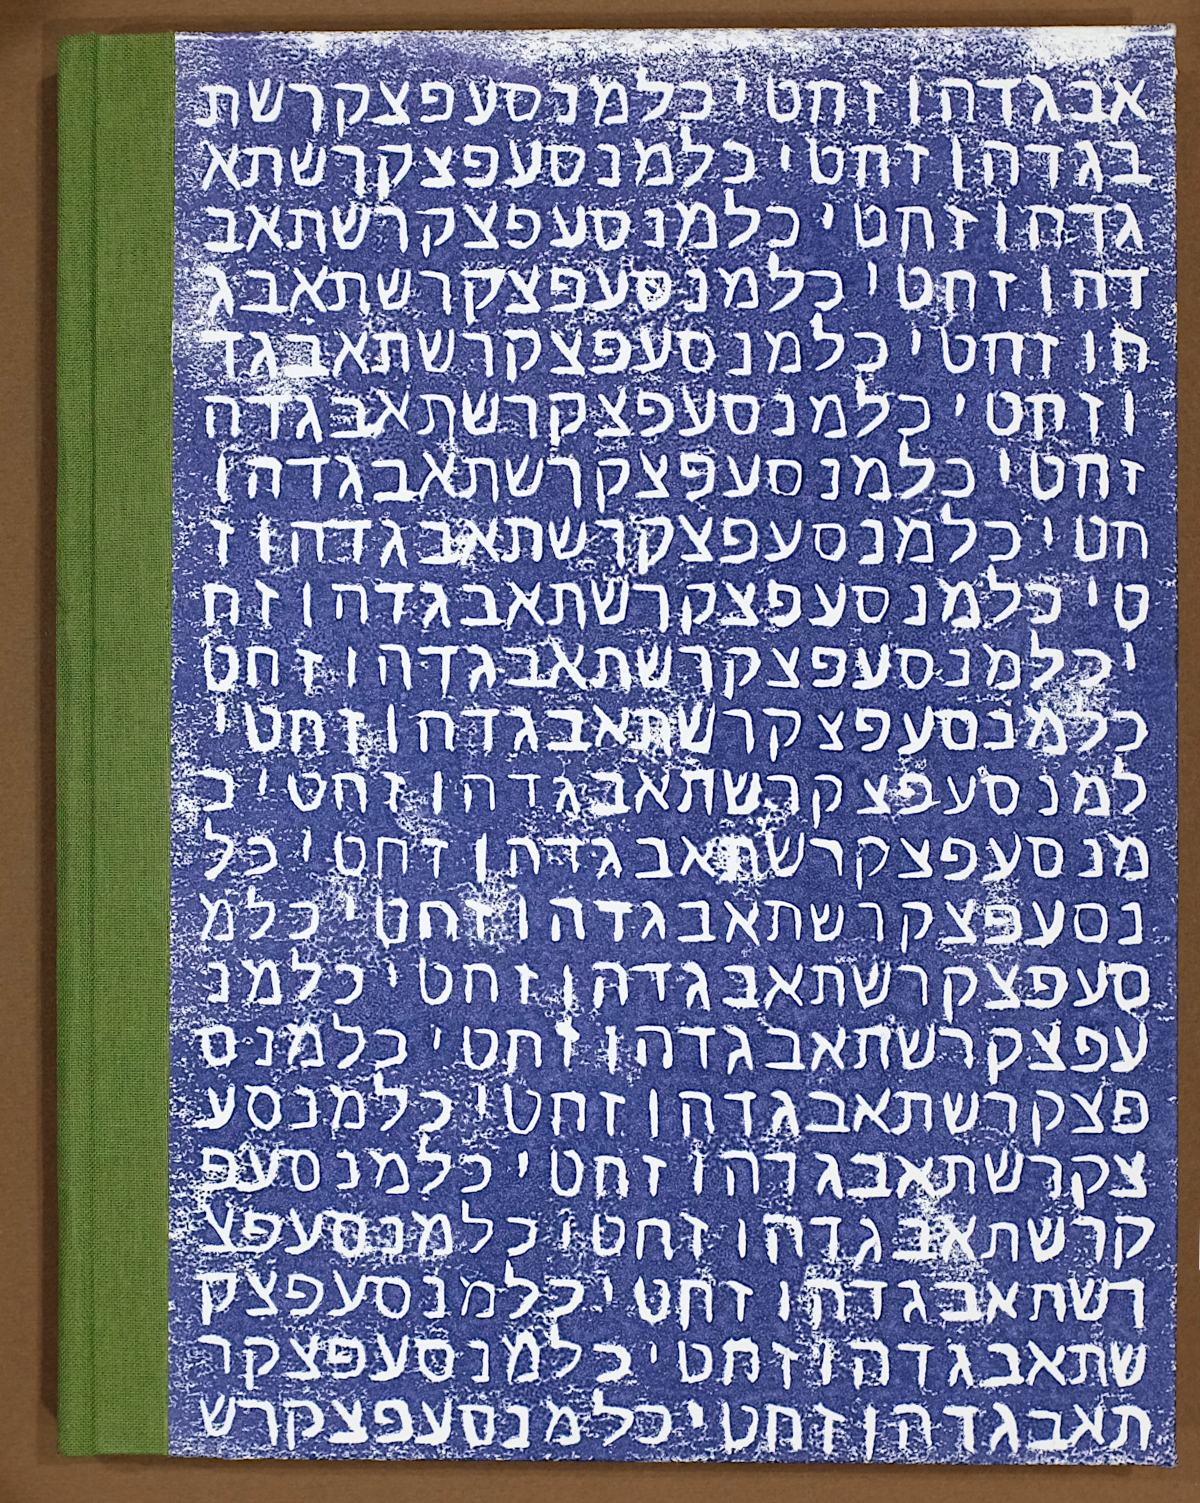 אבגדהוזחטיכלמנסעפצקרשת
בגדהוזחטיכלמנסעפצקרשתא
גדהוזחטיכלמנסעפצקרשתאב
דהוזחטיכלמנסעפצקרשתאבג
הוזחטיכלמנסעפצקרשתאבגד
וזחטיכלמנסעפצקרשתאבגדה
זחטיכלמנסעפצקרשתאבגדהו
חטיכלמנסעפצקרשתאבגדהוז
טיכלמנסעפצקרשתאבגדהוזח
יכלמנסעפצקרשתאבגדהוזחט
כלמנסעפצקרשתאבגדהוזחטי
למנסעפצקרשתאבגדהוזחטיכ
מנסעפצקרשתאבגדהוזחטיכל
נסעפצקרשתאבגדהוזחטיכלמ
סעפצקרשתאבגדהוזחטיכלמנ
עפצקרשתאבגדהוזחטיכלמנס
פצקרשתאבגדהוזחטיכלמנסע
צקרשתאבגדהוזחטיכלמנסעפ
קרשתאבגדהוזחטיכלמנסעפצ
רשתאבגדהוזחטיכלמנסעפצק
שתאבגדהוזחטיכלמנסעפצקר
תאבגדהוזחטיכלמנסעפצקרש